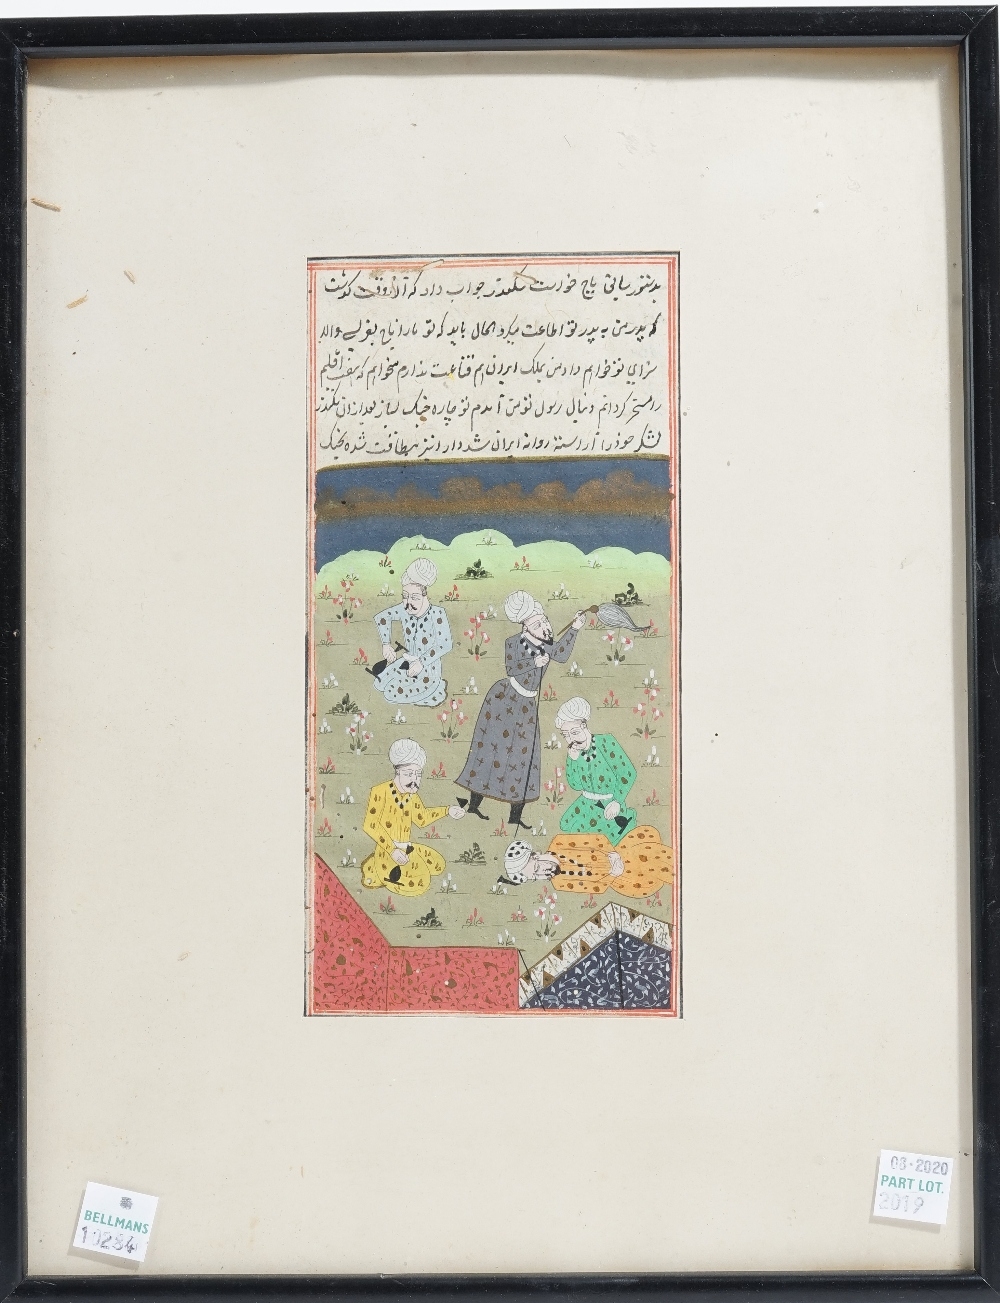 بدستور سابق باج خواست سکندر جواب داد که آن وقت گذشت
که پدر من به پدر تو اطاعت میکرد الحال باید که تو مارا باج بفرستی والا
سزای تو خواهم داد من بملک ایران هم قناعت ندارم میخواهم که هفت اقلیم
را مسخر کردانم دنبال رسول تو من آمدم تو چاره جنک بساز بعد ازان سکندر
لشکر خود را آراسته روانه ایران شد دارا نیز شده بجنک
BELLMANS
10284
08-2020
PART LOT.
2019